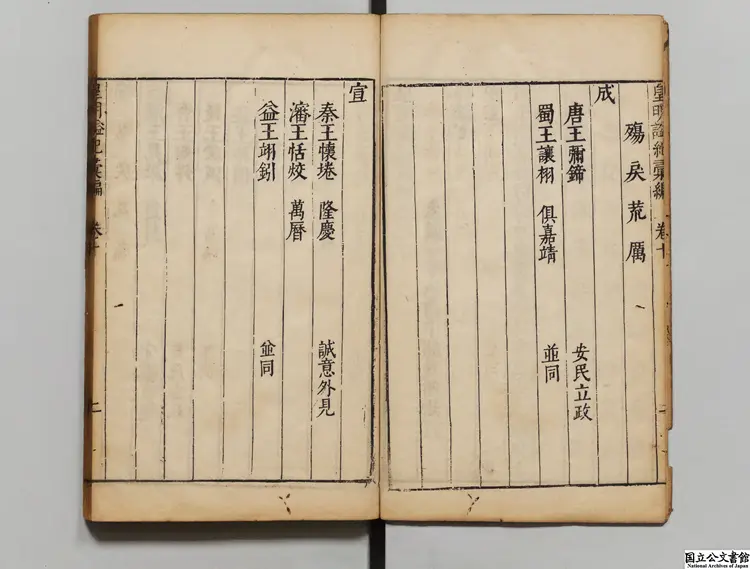 皇明諡紀彙編 卷十
殤 戾 荒 厲
成
唐王彌鍗 安民立政
蜀王讓栩 俱嘉靖 並同
宣
秦王懷埢 隆慶 誠意外見
瀋王恬烄 萬曆
益王翊鈏 並同
皇明諡紀彙編 卷十
二
国立公文書館
National Archives of Japan